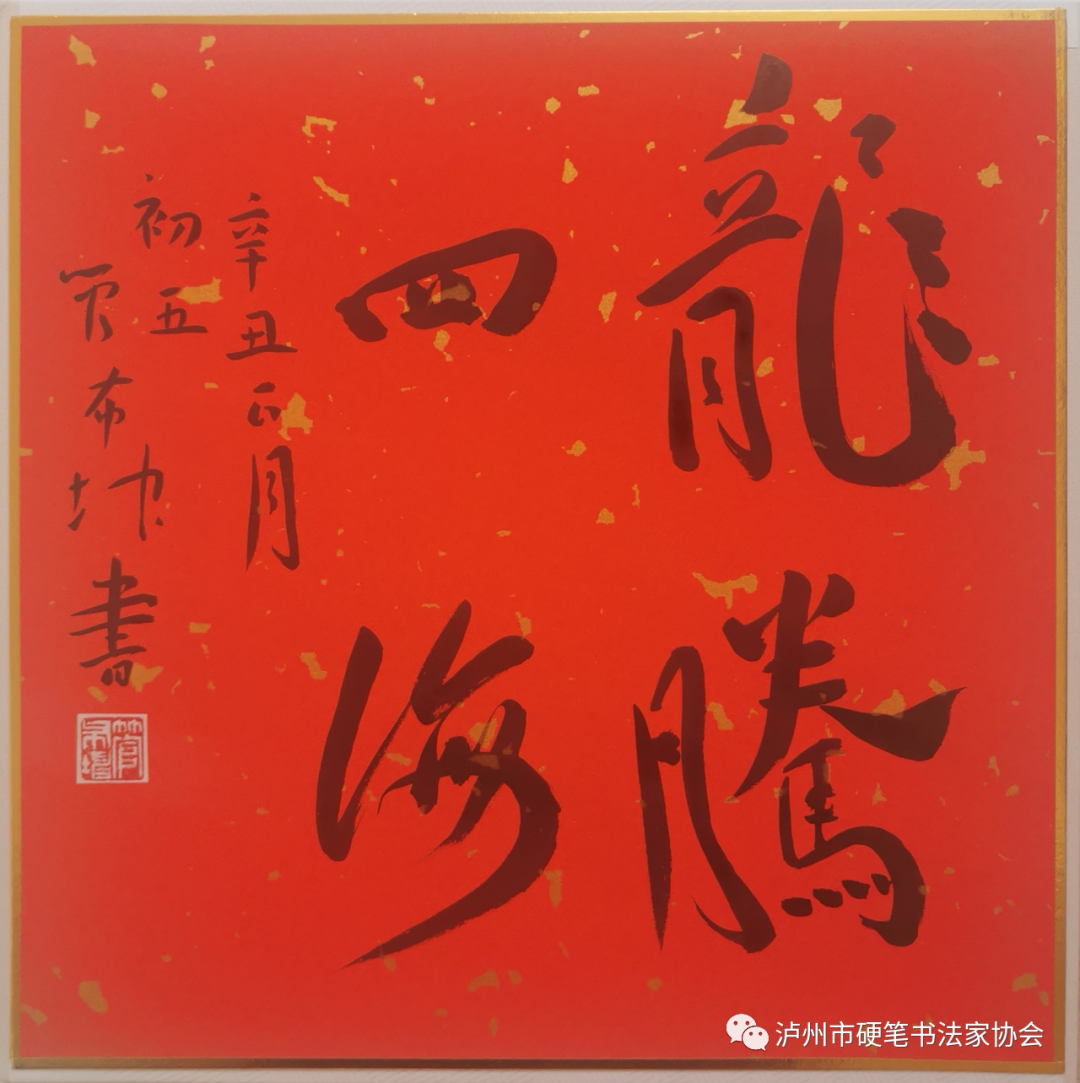 龍騰
四海
辛丑正月
初五
管布書
泸州市硬笔书法家协会